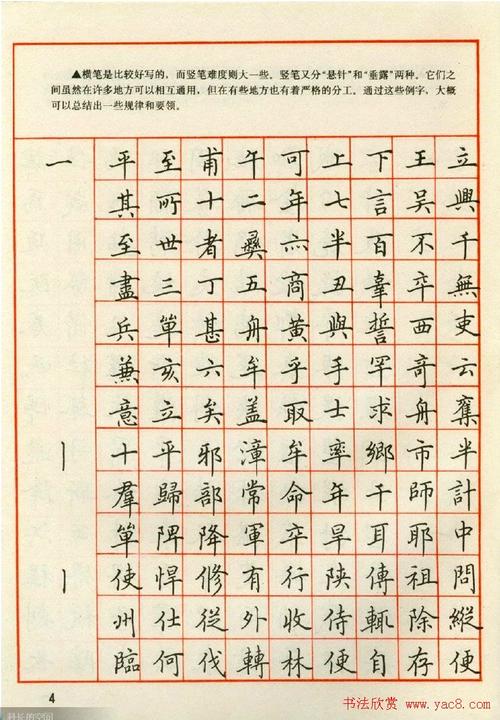 ▲横笔是比较好写的，而竖笔难度则大一些。竖笔又分“悬针”和“垂露”两种。它们之
间虽然在许多地方可以相互通用，但在有些地方也有着严格的分工。通过这些例字，大概
可以总结出一些规律和要领。
一 平 至 甫 午 可 上 下 王 立
其 所 十 二 年 七 言 吴 興
至 世 者 彝 六 半 百 不 千
盡 三 丁 五 商 丑 辜 卒 無
兵 箪 甚 舟 黄 與 誓 西 吏
兼 亥 六 牟 乎 手 罕 奇 云
意 立 矣 盖 取 士 求 舟 奪
丨 十 平 邪 漳 牟 率 鄉 市 半
羣 歸 部 常 命 年 千 師 計
箪 陴 降 軍 卒 旱 耳 耶 中
丨 使 悍 修 有 行 陕 傳 祖 問
州 仕 從 外 收 侍 輒 除 縱
臨 何 伐 轉 林 便 自 存 便
4
书法欣赏
www.yac8.com